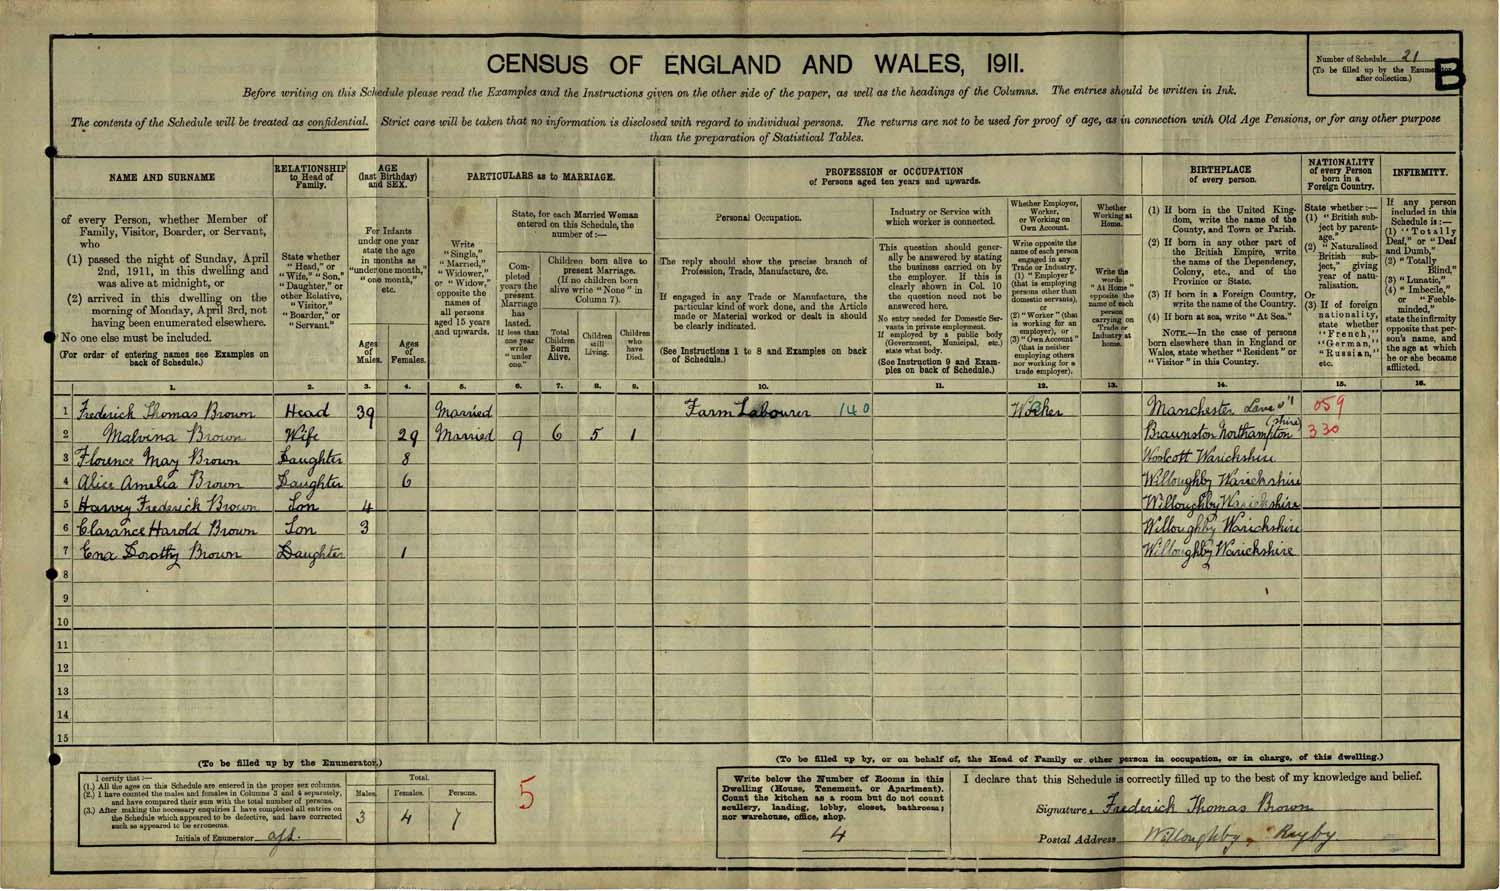 CENSUS OF ENGLAND AND WALES, 1911.
Number of Schedule 21
(To be filled up by the Enumerator after collection.)
B
Before writing on this Schedule please read the Examples and the Instructions given on the other side of the paper, as well as the headings of the Columns. The entries should be written in Ink.
The contents of the Schedule will be treated as confidential. Strict care will be taken that no information is disclosed with regard to individual persons. The returns are not to be used for proof of age, as in connection with Old Age Pensions, or for any other purpose
than the preparation of Statistical Tables.
NAME AND SURNAME
of every Person, whether Member of
Family, Visitor, Boarder, or Servant,
who
(1) passed the night of Sunday, April
2nd, 1911, in this dwelling and
was alive at midnight, or
(2) arrived in this dwelling on the
morning of Monday, April 3rd, not
having been enumerated elsewhere.
No one else must be included.
(For order of entering names see Examples on
back of Schedule.)
RELATIONSHIP
to Head of
Family.
State whether
"Head," or
"Wife," "Son,"
"Daughter," or
other Relative,
"Visitor,"
"Boarder," or
"Servant."
AGE
(last Birthday)
and SEX.
For Infants
under one year
state the age
in months as
"under one month,"
"one month,"
etc.
Ages
of
Males.
Ages
of
Females.
PARTICULARS as to MARRIAGE.
Write
"Single,"
"Married,"
"Widower,"
or "Widow,"
opposite the
names of
all persons
aged 15 years
and upwards.
State, for each Married Woman
entered on this Schedule, the
number of:—
Com-
pleted
years the
present
Marriage
has
lasted.
If less than
one year
write
"under
one."
Children born alive to
present Marriage.
(If no children born
alive write "None" in
Column 7).
Total
Children
Born
Alive.
Children
still
Living.
Children
who
have
Died.
PROFESSION or OCCUPATION
of Persons aged ten years and upwards.
Personal Occupation.
The reply should show the precise branch of
Profession, Trade, Manufacture, &c.
If engaged in any Trade or Manufacture, the
particular kind of work done, and the Article
made or Material worked or dealt in should
be clearly indicated.
(See Instructions 1 to 8 and Examples on back
of Schedule.)
Industry or Service with
which worker is connected.
This question should gener-
ally be answered by stating
the business carried on by
the employer. If this is
clearly shown in Col. 10
the question need not be
answered here.
No entry needed for Domestic Ser-
vants in private employment.
If employed by a public body
(Government, Municipal, etc.)
state what body.
(See Instruction 9 and Exam-
ples on back of Schedule.)
Whether Employer,
Worker,
or Working on
Own Account.
Write opposite the
name of each person
engaged in any
Trade or Industry,
(1) "Employer"
(that is employing
persons other than
domestic servants),
or
(2) "Worker" (that
is working for an
employer), or
(3) "Own Account"
(that is neither
employing others
nor working for a
trade employer).
Whether
Working at
Home.
Write the
words
"At Home"
opposite the
name of each
person
carrying on
Trade or
Industry at
home.
BIRTHPLACE
of every person.
(1) If born in the United King-
dom, write the name of the
County, and Town or Parish.
(2) If born in any other part of
the British Empire, write
the name of the Dependency,
Colony, etc., and of the
Province or State.
(3) If born in a Foreign Country,
write the name of the Country.
(4) If born at sea, write "At Sea."
NOTE.—In the case of persons
born elsewhere than in England or
Wales, state whether "Resident" or
"Visitor" in this Country.
NATIONALITY
of every Person
born in a
Foreign Country.
State whether :—
(1) "British sub-
ject by parent-
age."
(2) "Naturalised
British sub-
ject," giving
year of natu-
ralisation.
Or
(3) If of foreign
nationality,
state whether
"French,"
"German,"
"Russian,"
etc.
INFIRMITY.
If any person
included in this
Schedule is :—
(1) "Totally
Deaf," or "Deaf
and Dumb,"
(2) "Totally
Blind,"
(3) "Lunatic,"
(4) "Imbecile,"
or "Feeble-
minded,"
state the infirmity
opposite that per-
son's name, and
the age at which
he or she became
afflicted.
1. 2. 3. 4. 5. 6. 7. 8. 9. 10. 11. 12. 13. 14. 15. 16.
1 Frederick Thomas Brown Head 39 Married Farm Labourer 140 Worker Manchester 059
2 Malvina Brown Wife 29 Married 9 6 5 1 Braunston Northampton (shire) 330
3 Florence May Brown Daughter 8 Woolcott Warickshire
4 Alice Amelia Brown Daughter 6 Willoughby Warickshire
5 Harvey Frederick Brown Son 4 Willoughby Warickshire
6 Clarance Harold Brown Son 3 Willoughby Warickshire
7 Ena Dorothy Brown Daughter 1 Willoughby Warickshire
8
9
10
11
12
13
14
15
(To be filled up by the Enumerator.)
I certify that :—
(1.) All the ages on this Schedule are entered in the proper sex columns.
(2.) I have counted the males and females in Columns 3 and 4 separately,
and have compared their sum with the total number of persons.
(3.) After making the necessary enquiries I have completed all entries on
the Schedule which appeared to be defective, and have corrected
such as appeared to be erroneous.
Initials of Enumerator
Total.
Males. Females. Persons.
3 4 7
5
(To be filled up by, or on behalf of, the Head of Family or other person in occupation, or in charge, of this dwelling.)
Write below the Number of Rooms in this
Dwelling (House, Tenement, or Apartment).
Count the kitchen as a room but do not count
scullery, landing, lobby, closet, bathroom;
nor warehouse, office, shop.
4
I declare that this Schedule is correctly filled up to the best of my knowledge and belief.
Signature Frederick Thomas Brown
Postal Address Willoughby, Rugby.